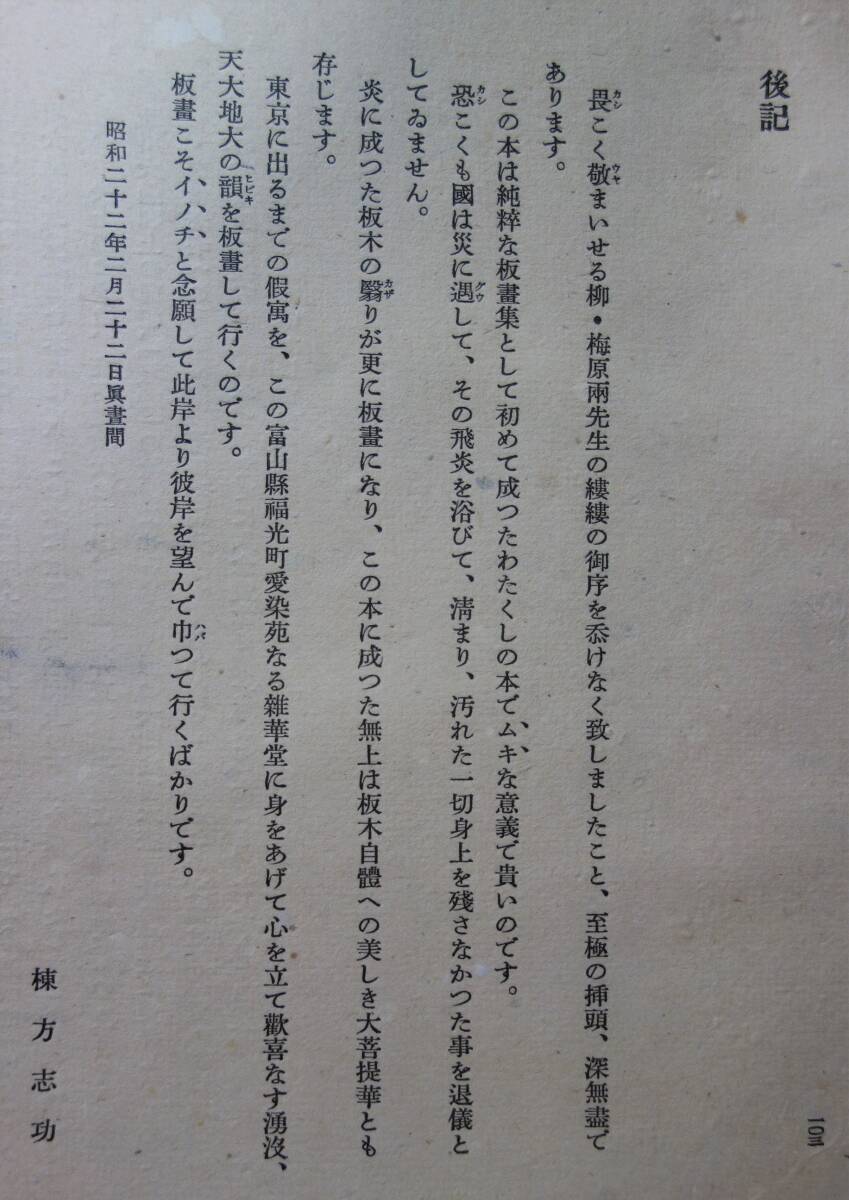 後記
畏こく敬まいせる柳・梅原兩先生の縷縷の御序を忝けなく致しましたこと、至極の挿頭、深無盡で
あります。
この本は純粹な板畫集として初めて成つたわたくしの本で、ムキな意義で貴いのです。
恐こくも國は災に遇して、その飛炎を浴びて、淸まり、汚れた一切身上を殘さなかつた事を退儀と
してゐません。
炎に成つた板木の翳りが更に板畫になり、この本に成つた無上は板木自體への美しき大菩提華とも
存じます。
東京に出るまでの假寓を、この富山縣福光町愛染苑なる雜華堂に身をあげて心を立て歡喜なす湧沒、
天大地大の韻を板畫して行くのです。
板畫こそイノチと念願して此岸より彼岸を望んで巾つて行くばかりです。
昭和二十二年二月二十二日眞晝間
棟方志功
一〇三